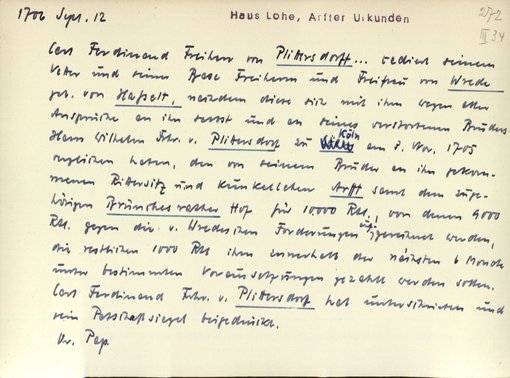 1706 Sept. 12
Haus Lohe, Arfter Urkunden
272
III 34
Carl Ferdinand Freiherr von Plittersdorff... cediert seinem
Vetter und seiner Base Freiherrn und Freifrau von Wrede
geb. von Hasselt, nachdem diese sich mit ihm wegen aller
Ansprüche an ihn selbst und an seines verstorbenen Bruders
Hans Wilhelm Frhr. v. Plittersdorf zu Köln am 7. Nov. 1705
verglichen haben, den von seinem Bruder an ihn gekom-
menen Rittersitz und Kunkellehen Arft samt dem zuge-
hörigen Hof für 10000 Rtl., von denen 9000
Rtl. gegen die v. Wredeschen Forderungen aufgerechnet werden,
die restlichen 1000 Rtl ihm innerhalb der nächsten 6 Monate
unter bestimmten Voraussetzungen gezahlt werden sollen.
Carl Ferdinand Frhr. v. Plittersdorf hat unterschrieben und
sein Petschaftsiegel beigedrückt.
Or. Pap.